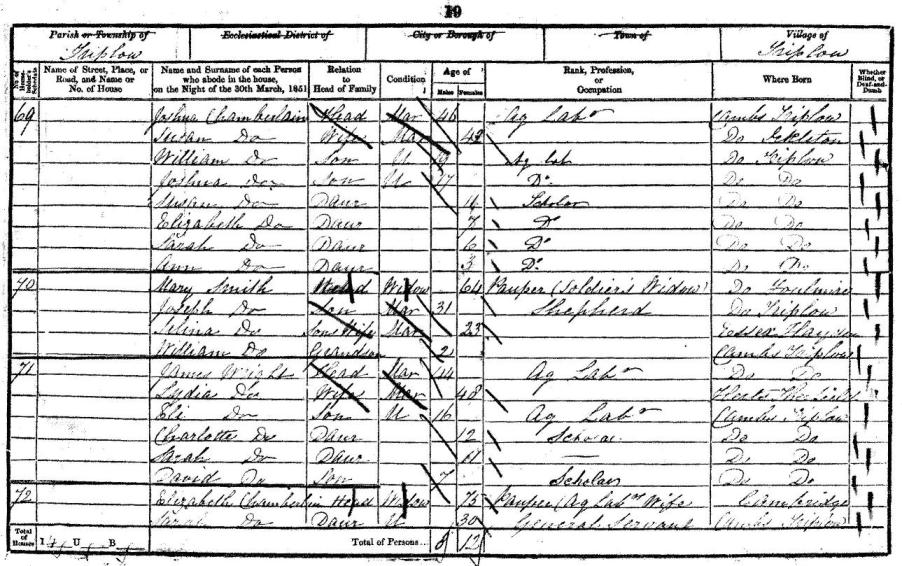 19
Parish or Township of Ecclesiastical District of City or Borough of Town of Village of
Triplow Triplow
Name of Street, Place, or Road, and Name or No. of House
Name and Surname of each Person who abode in the house, on the Night of the 30th March, 1851
Relation to Head of Family
Condition
Age of
Males Females
Rank, Profession, or Occupation
Where Born
Whether Blind, or Deaf-and-Dumb
69 Joshua Chamberlain Head Mar 46 Ag Labr Cambs Triplow
Susan Do Wife Mar 42 Do Ickleton
William Do Son U 19 Ag Lab Do Triplow
Joshua Do Son U 17 Do Do Do
Susan Do Daur Scholar Do Do
Elizabeth Do Daur 7 Do Do Do
Sarah Do Daur 6 Do Do Do
Ann Do Daur 3 Do Do Do
70 Mary Smith Head Widow 64 Pauper (Soldier's Widow) Do Foulmire
Joseph Do Son Mar 31 Shepherd Do Triplow
Selina Do Sons Wife Mar 23 Essex
William Do Grandson 2 Cambs Triplow
71 James Wright Head Mar 44 Ag Labr Do Do
Lydia Do Wife Mar 48 Herts
Eli Do Son U 16 Ag Labr Cambs Triplow
Charlotte Do Daur 12 Scholar Do Do
Sarah Do Daur 11 — Do Do
David Do Son 7 Scholar Do Do
72 Elizabeth Chamberlin Head Widow 73 Pauper (Ag Labr Wife Cambridge
Sarah Do Daur U 30 General Servant Cambs Triplow
Total of Houses I 4 U B Total of Persons 8 12